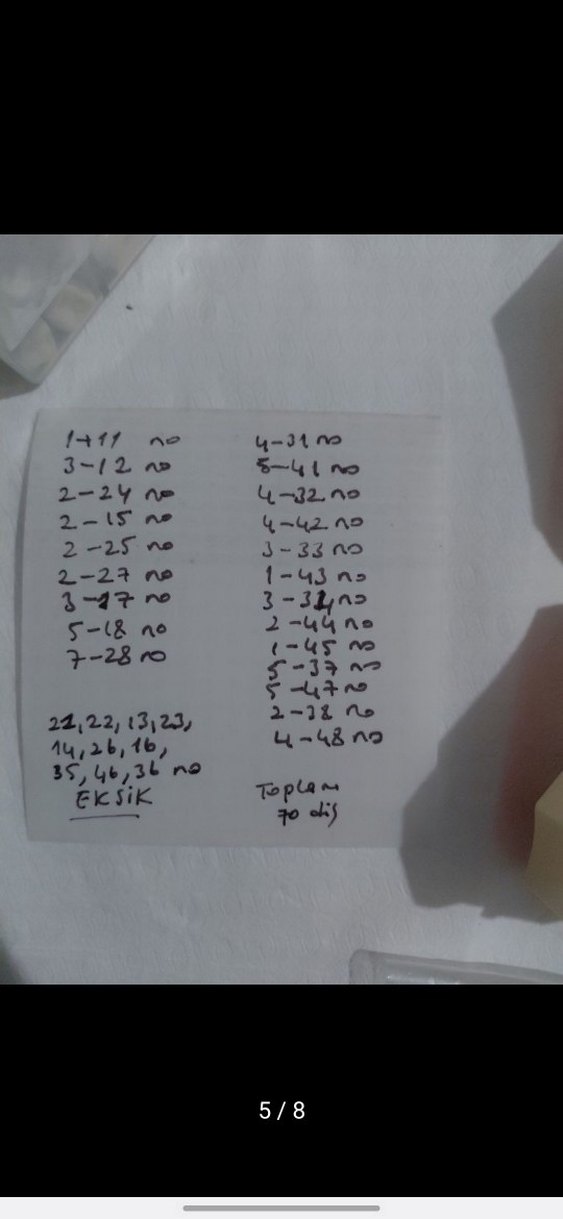 1-11 no
3-12 no
2-24 no
2-15 no
2-25 no
2-27 no
3-17 no
5-18 no
7-28 no
21, 22, 13, 23,
14, 26, 16,
35, 46, 36 no
EKSİK
4-31 no
5-41 no
4-32 no
4-42 no
3-33 no
1-43 no
3-34 no
2-44 no
1-45 no
5-37 no
5-47 no
2-38 no
4-48 no
Toplam
70 diş
5 / 8